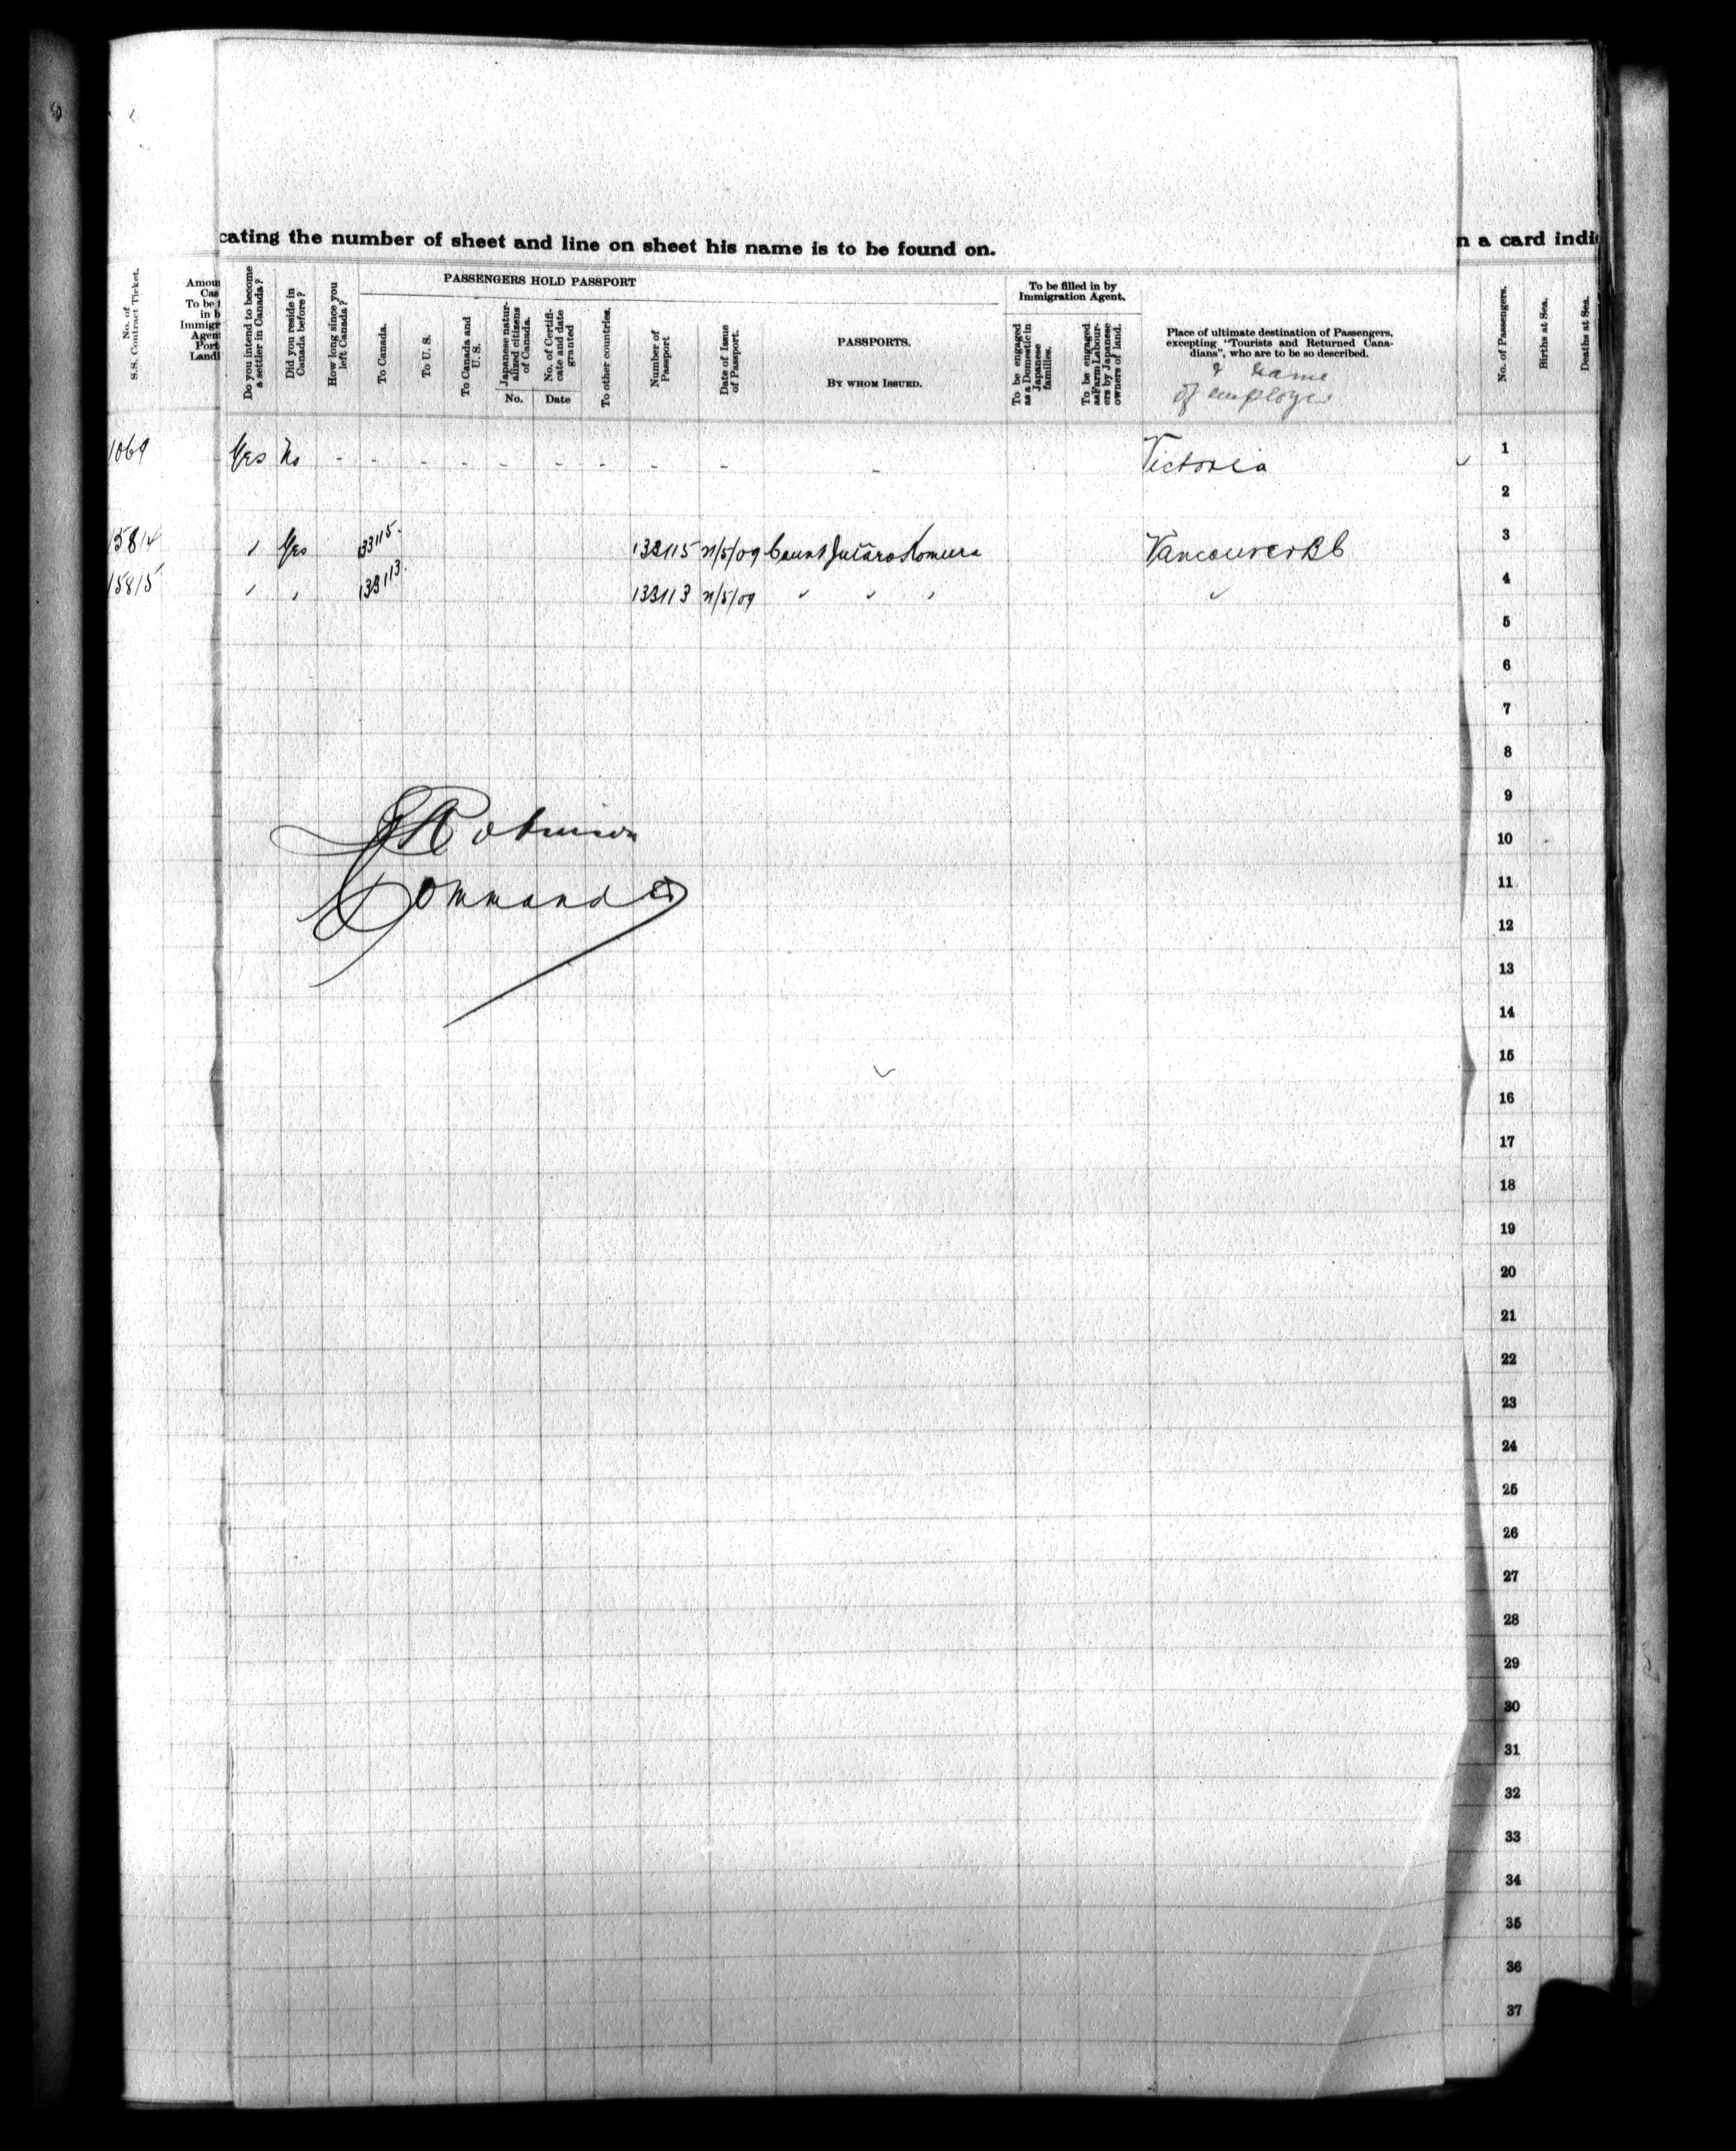 cating the number of sheet and line on sheet his name is to be found on.
n a card indi
No. of S.S. Contract Ticket.
Amou
Cas
To be
in b
Immigr
Agent
Port
Landi
Do you intend to become a settler in Canada?
Did you reside in Canada before?
How long since you left Canada?
PASSENGERS HOLD PASSPORT
To Canada.
To U. S.
To Canada and U. S.
Japanese naturalized citizens of Canada.
No.
No. of Certificate and date granted
Date
To other countries.
Number of Passport
Date of Issue of Passport.
PASSPORTS.
BY WHOM ISSUED.
To be filled in by
Immigration Agent.
To be engaged as a Domestic in Japanese families.
To be engaged as Farm Labourers by Japanese owners of land.
Place of ultimate destination of Passengers,
excepting "Tourists and Returned Cana-
dians", who are to be so described.
& name
of employer
No. of Passengers.
Births at Sea.
Deaths at Sea.
1069 Yes No - - - - - - - - - - Victoria 1
2
15814 " Yes 133115. 133115 21/5/09 Count Jutaro Komura Vancouver BC 3
15815 " " 133113. 133113 21/5/09 " " " " 4
5
6
7
8
9
Robinson 10
Commander 11
12
13
14
15
16
17
18
19
20
21
22
23
24
25
26
27
28
29
30
31
32
33
34
35
36
37